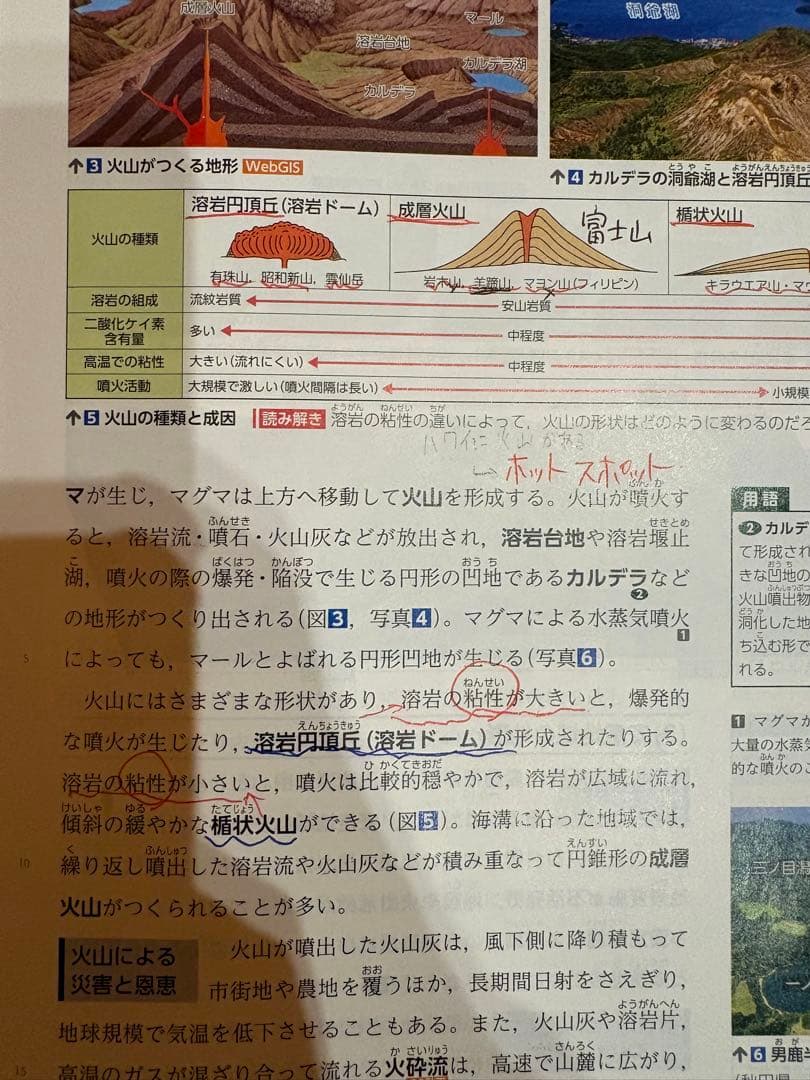 成層火山
マール
溶岩台地
カルデラ湖
カルデラ
洞爺湖
↑3 火山がつくる地形 WebGIS
↑4 カルデラの洞爺湖と溶岩円頂丘
火山の種類
溶岩円頂丘(溶岩ドーム)
有珠山，昭和新山，雲仙岳
成層火山
富士山
岩木山，羊蹄山，マヨン山(フィリピン)
楯状火山
キラウエア山・マウ
溶岩の組成 流紋岩質 安山岩質
二酸化ケイ素含有量 多い 中程度
高温での粘性 大きい(流れにくい) 中程度
噴火活動 大規模で激しい(噴火間隔は長い) 小規模
↑5 火山の種類と成因 読み解き 溶岩の粘性の違いによって，火山の形状はどのように変わるのだろ
火山がある
→ホットスポット
マが生じ，マグマは上方へ移動して火山を形成する。火山が噴火す
ると，溶岩流・噴石・火山灰などが放出され，溶岩台地や溶岩堰止
湖，噴火の際の爆発・陥没で生じる円形の凹地であるカルデラ2など
の地形がつくり出される(図3，写真4)。マグマによる水蒸気噴火1
5 によっても，マールとよばれる円形凹地が生じる(写真6)。
火山にはさまざまな形状があり，溶岩の粘性が大きいと，爆発的
な噴火が生じたり，溶岩円頂丘(溶岩ドーム)が形成されたりする。
溶岩の粘性が小さいと，噴火は比較的穏やかで，溶岩が広域に流れ，
傾斜の緩やかな楯状火山ができる(図5)。海溝に沿った地域では，
10 繰り返し噴出した溶岩流や火山灰などが積み重なって円錐形の成層
火山がつくられることが多い。
火山による
災害と恩恵
火山が噴出した火山灰は，風下側に降り積もって
市街地や農地を覆うほか，長期間日射をさえぎり，
地球規模で気温を低下させることもある。また，火山灰や溶岩片，
15 高温のガスが混ざり合って流れる火砕流は，高速で山麓に広がり，
用語
2 カルデラ
て形成され
きな凹地の
火山噴出物
洞化した地
ち込む形で
れる。
1 マグマが
大量の水蒸気
的な噴火のこ
三ノ目潟
一ノ
↑6 男鹿半
(秋田県